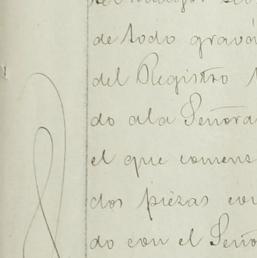 de todo gravá
del Registro
do ala Señora
el que comenz
dos piezas con
do con el Seño